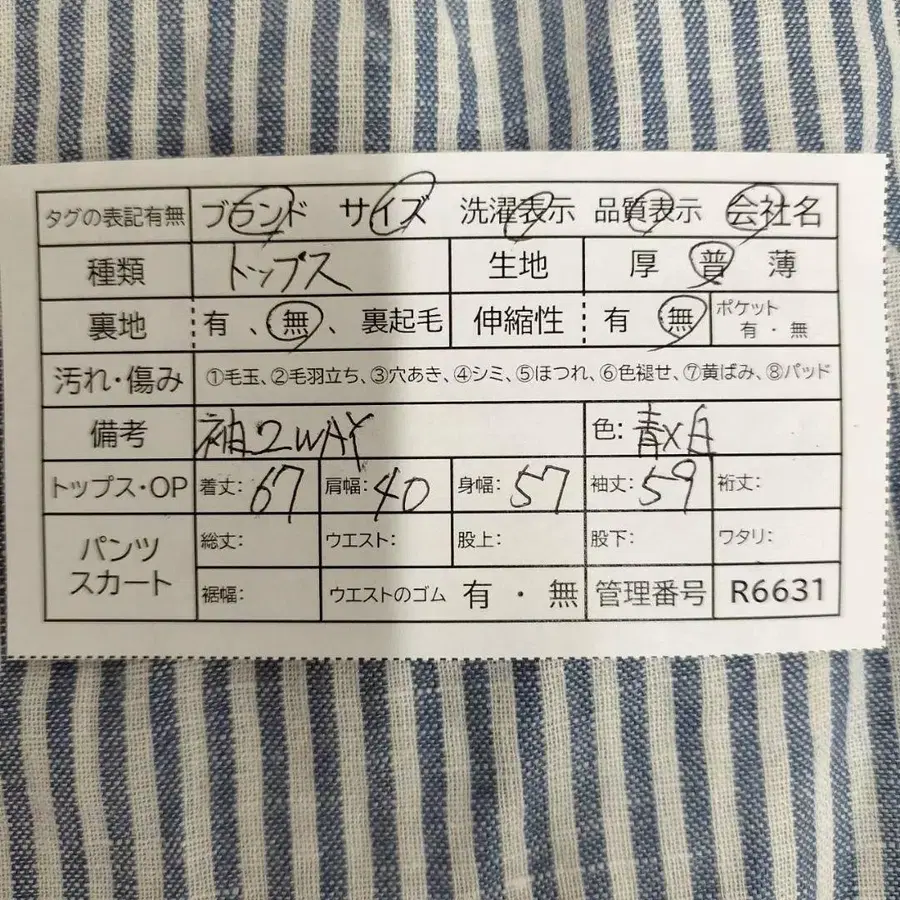 タグの表記有無 ブランド サイズ 洗濯表示 品質表示 会社名
種類 トップス 生地 厚 普 薄
裏地 有、無、裏起毛 伸縮性 有 無 ポケット 有・無
汚れ・傷み ①毛玉、②毛羽立ち、③穴あき、④シミ、⑤ほつれ、⑥色褪せ、⑦黄ばみ、⑧パッド
備考 袖2WAY 色: 青×白
トップス・OP 着丈: 67 肩幅: 40 身幅: 57 袖丈: 59 裄丈:
パンツ スカート 総丈: ウエスト: 股上: 股下: ワタリ:
裾幅: ウエストのゴム 有・無 管理番号 R6631